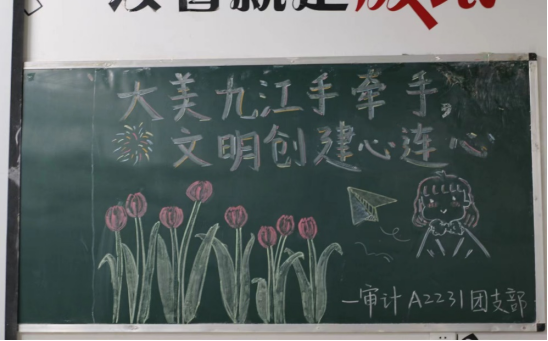 大美九江手牵手，
文明创建心连心
—审计A2231团支部